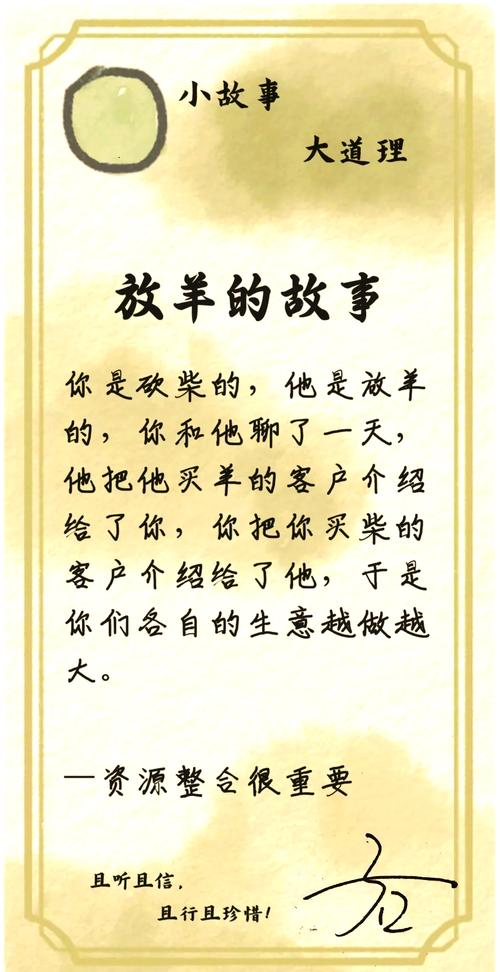 小故事
大道理
放羊的故事
你是砍柴的，他是放羊
的，你和他聊了一天，
他把他买羊的客户介绍
给了你，你把你买柴的
客户介绍给了他，于是
你们各自的生意越做越
大。
—资源整合很重要
且听且信，
且行且珍惜！